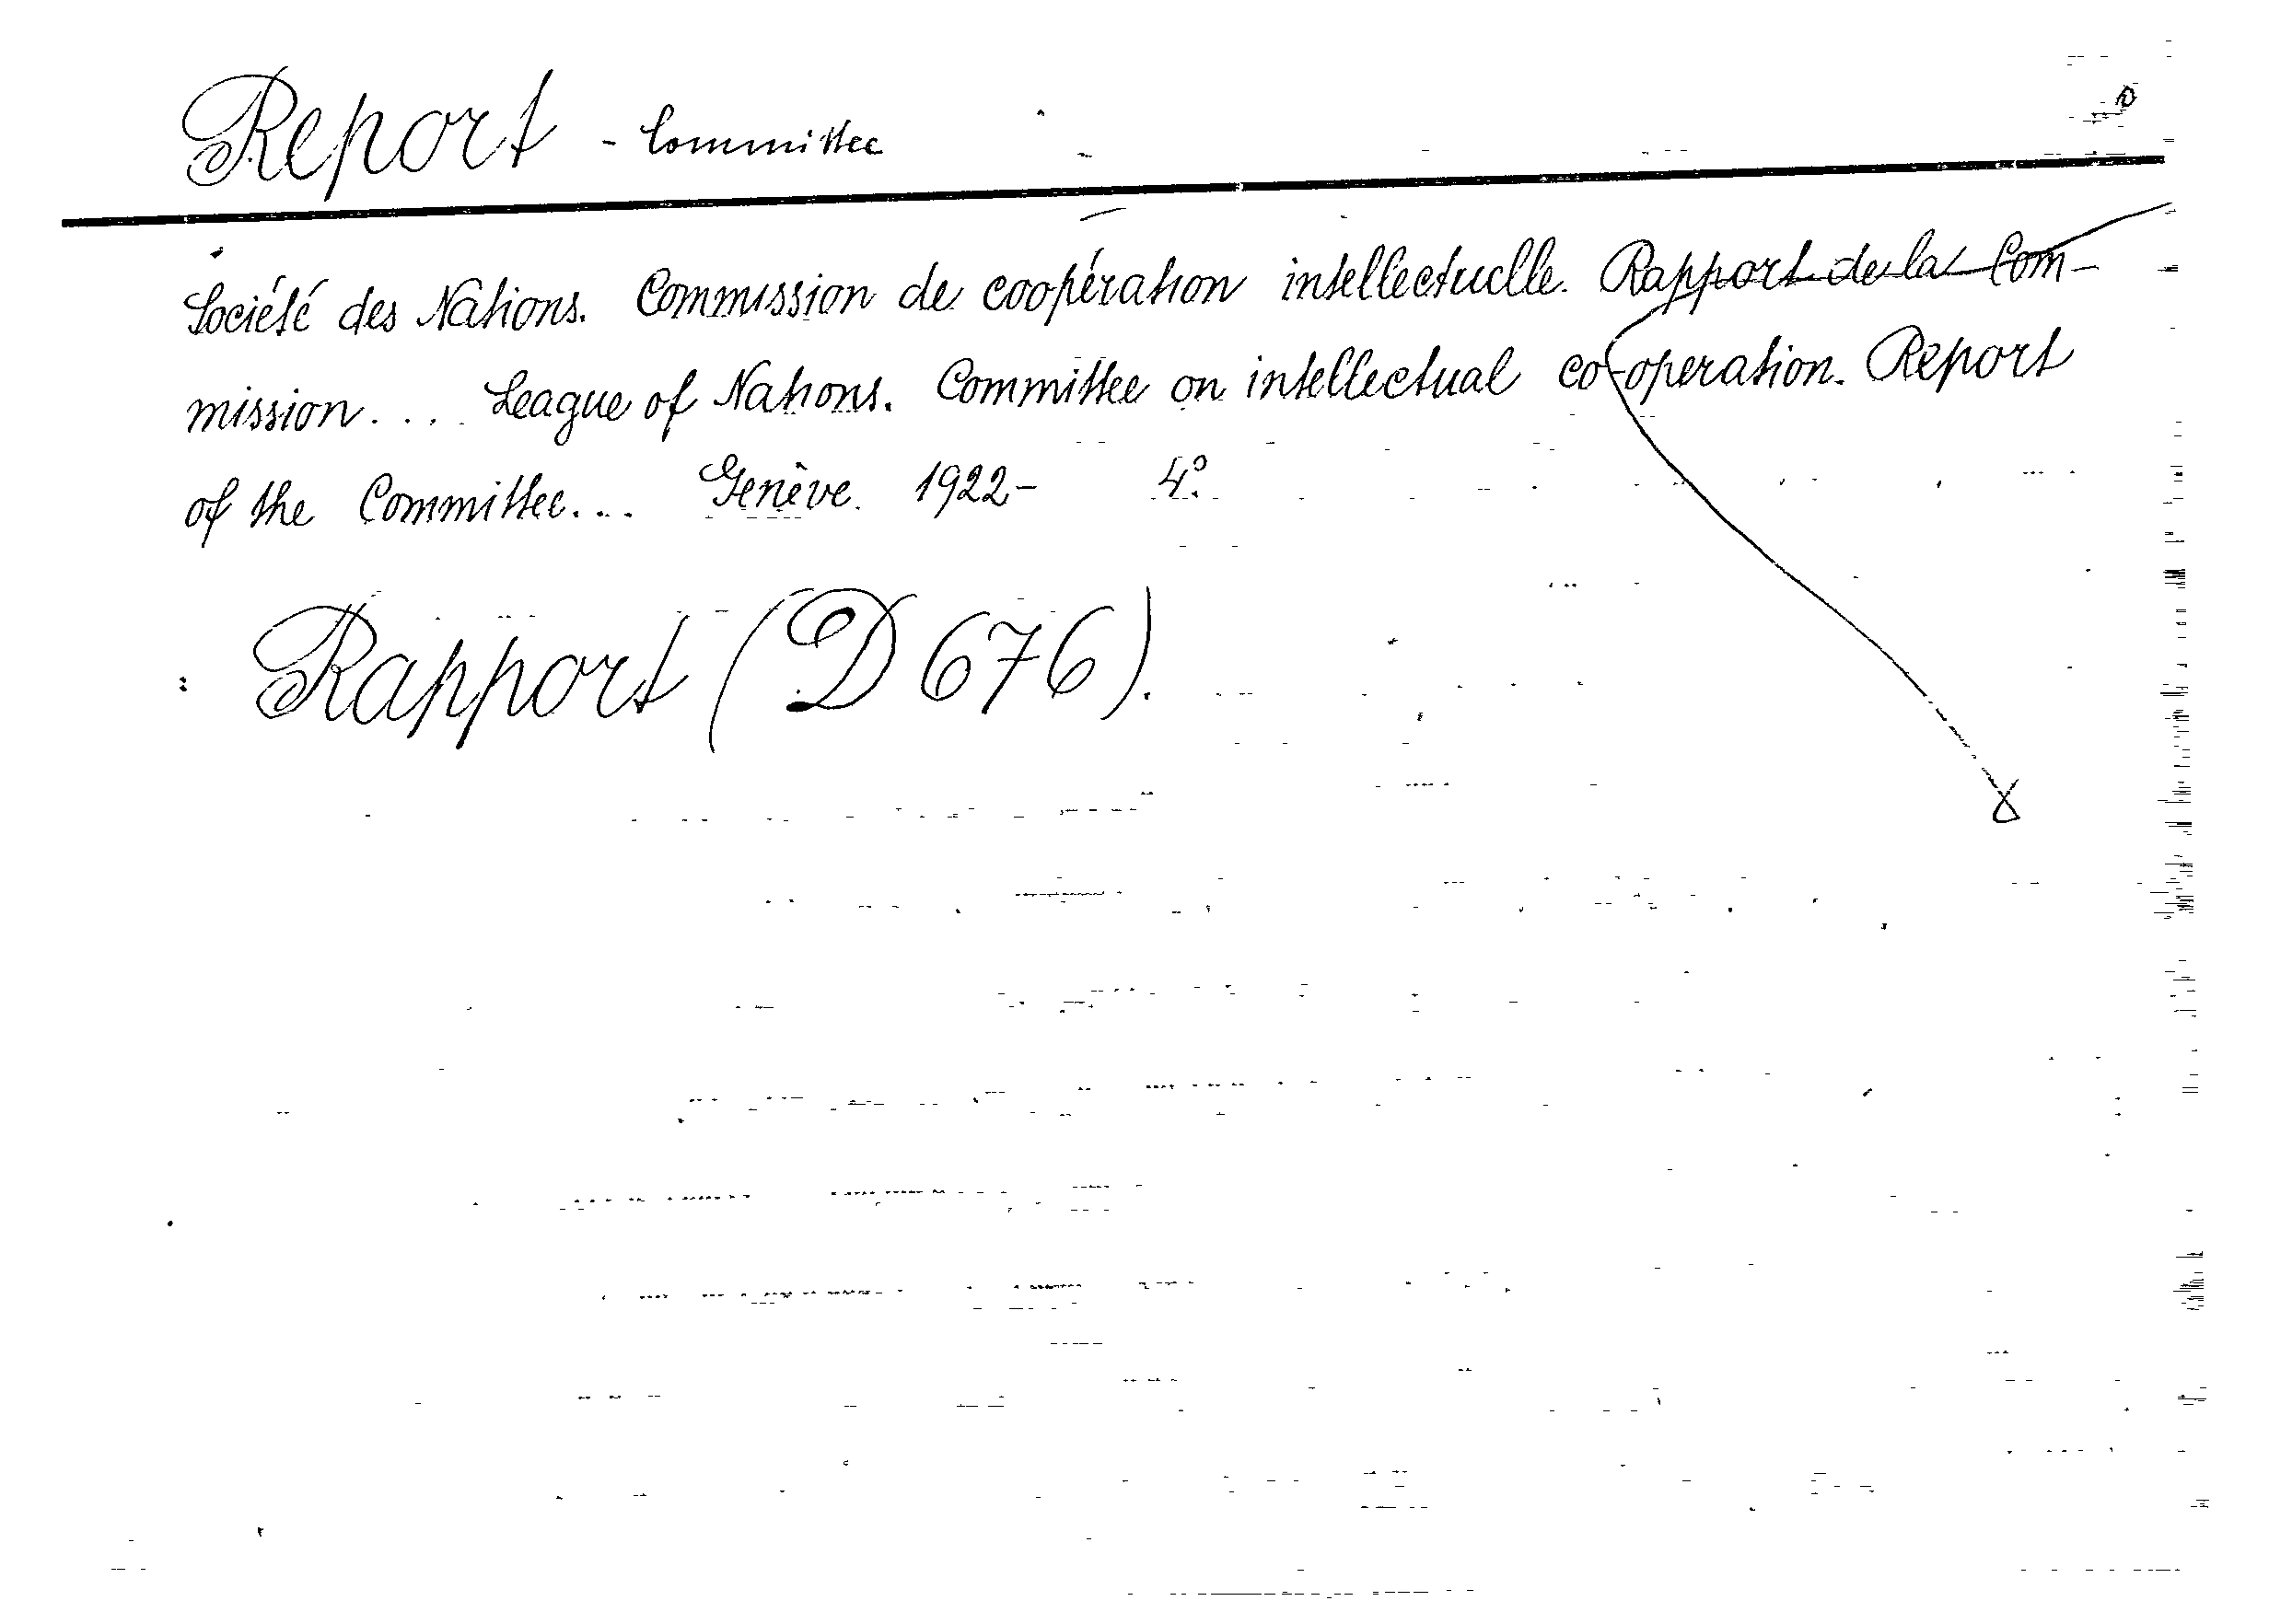 Report - Committee
Société des Nations. Commission de coopération intellectuelle. Rapport de la Com-
mission... League of Nations. Committee on intellectual co-operation. Report
of the Committee... Genève. 1922- 4º.
: Rapport (D 676).